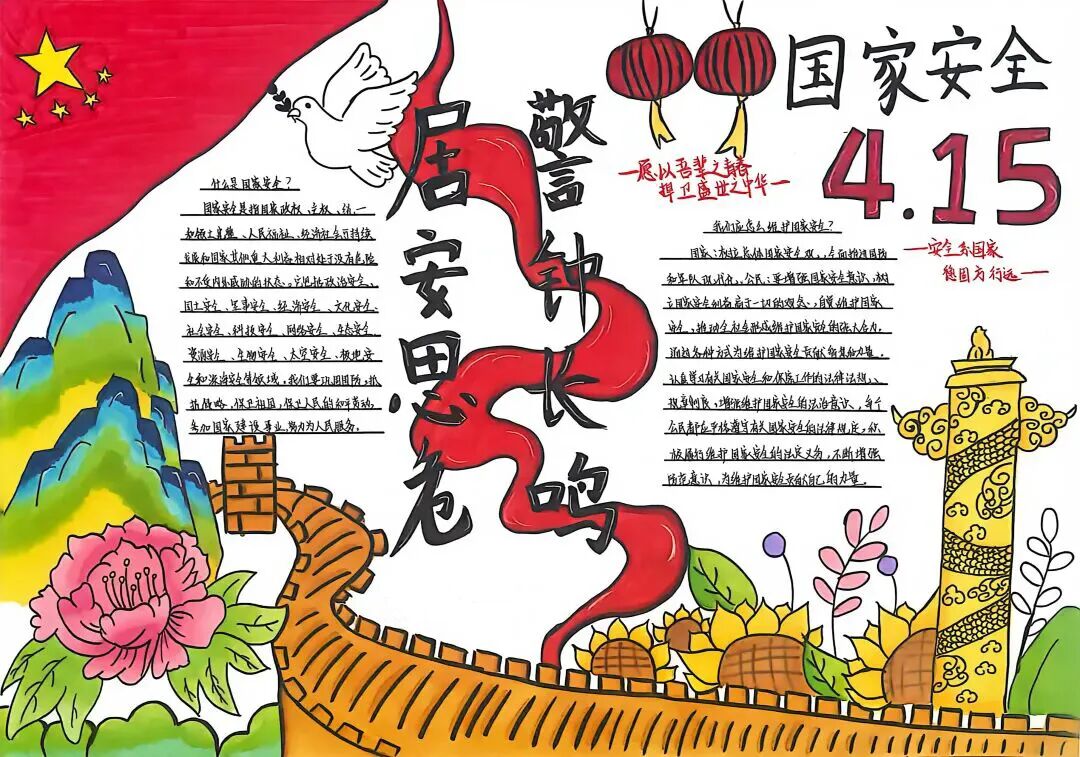 国家安全
4.15
居安思危
警钟长鸣
—愿以吾辈之青春
捍卫盛世之中华—
—安全系国家
稳固方行远—
什么是国家安全?
国家安全是指国家政权、主权、统一
和领土完整、人民福祉、经济社会可持续
发展和国家其他重大利益相对处于没有危险
和不受内外威胁的状态。它包括政治安全、
国土安全、军事安全、经济安全、文化安全、
社会安全、科技安全、网络安全、生态安全、
资源安全、生物安全、太空安全、极地安
全和深海安全等领域。我们要巩固国防,抵
抗侵略,保卫祖国,保卫人民的和平劳动,
参加国家建设事业,努力为人民服务。
我们应怎么维护国家安全?
国家:树立总体国家安全观,全面推进国防
和军队现代化。公民:要增强国家安全意识,树
立国家安全利益高于一切的观念,自觉维护国家
安全,推动全社会形成维护国家安全的强大合力。
通过各种方式为维护国家安全贡献智慧和力量。
认真学习有关国家安全和保密工作的法律法规、
规章制度,增强维护国家安全的法治意识,每个
公民都应严格遵守有关国家安全的法律规定,积
极履行维护国家安全的法定义务,不断增强
防范意识,为维护国家安全贡献自己的力量。